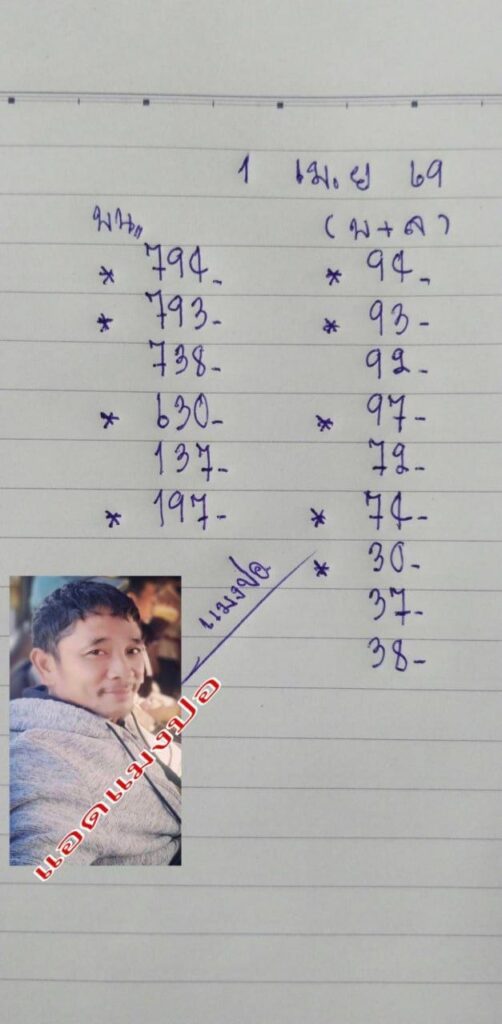 1 เม.ย 69
บน,, (บ+ล)
* 794- * 94-
* 793- * 93-
738- 92-
* 630- * 97-
137- 72-
* 197- * 74-
* 30-
37-
38-
แมงปอ
แอดแมงปอ